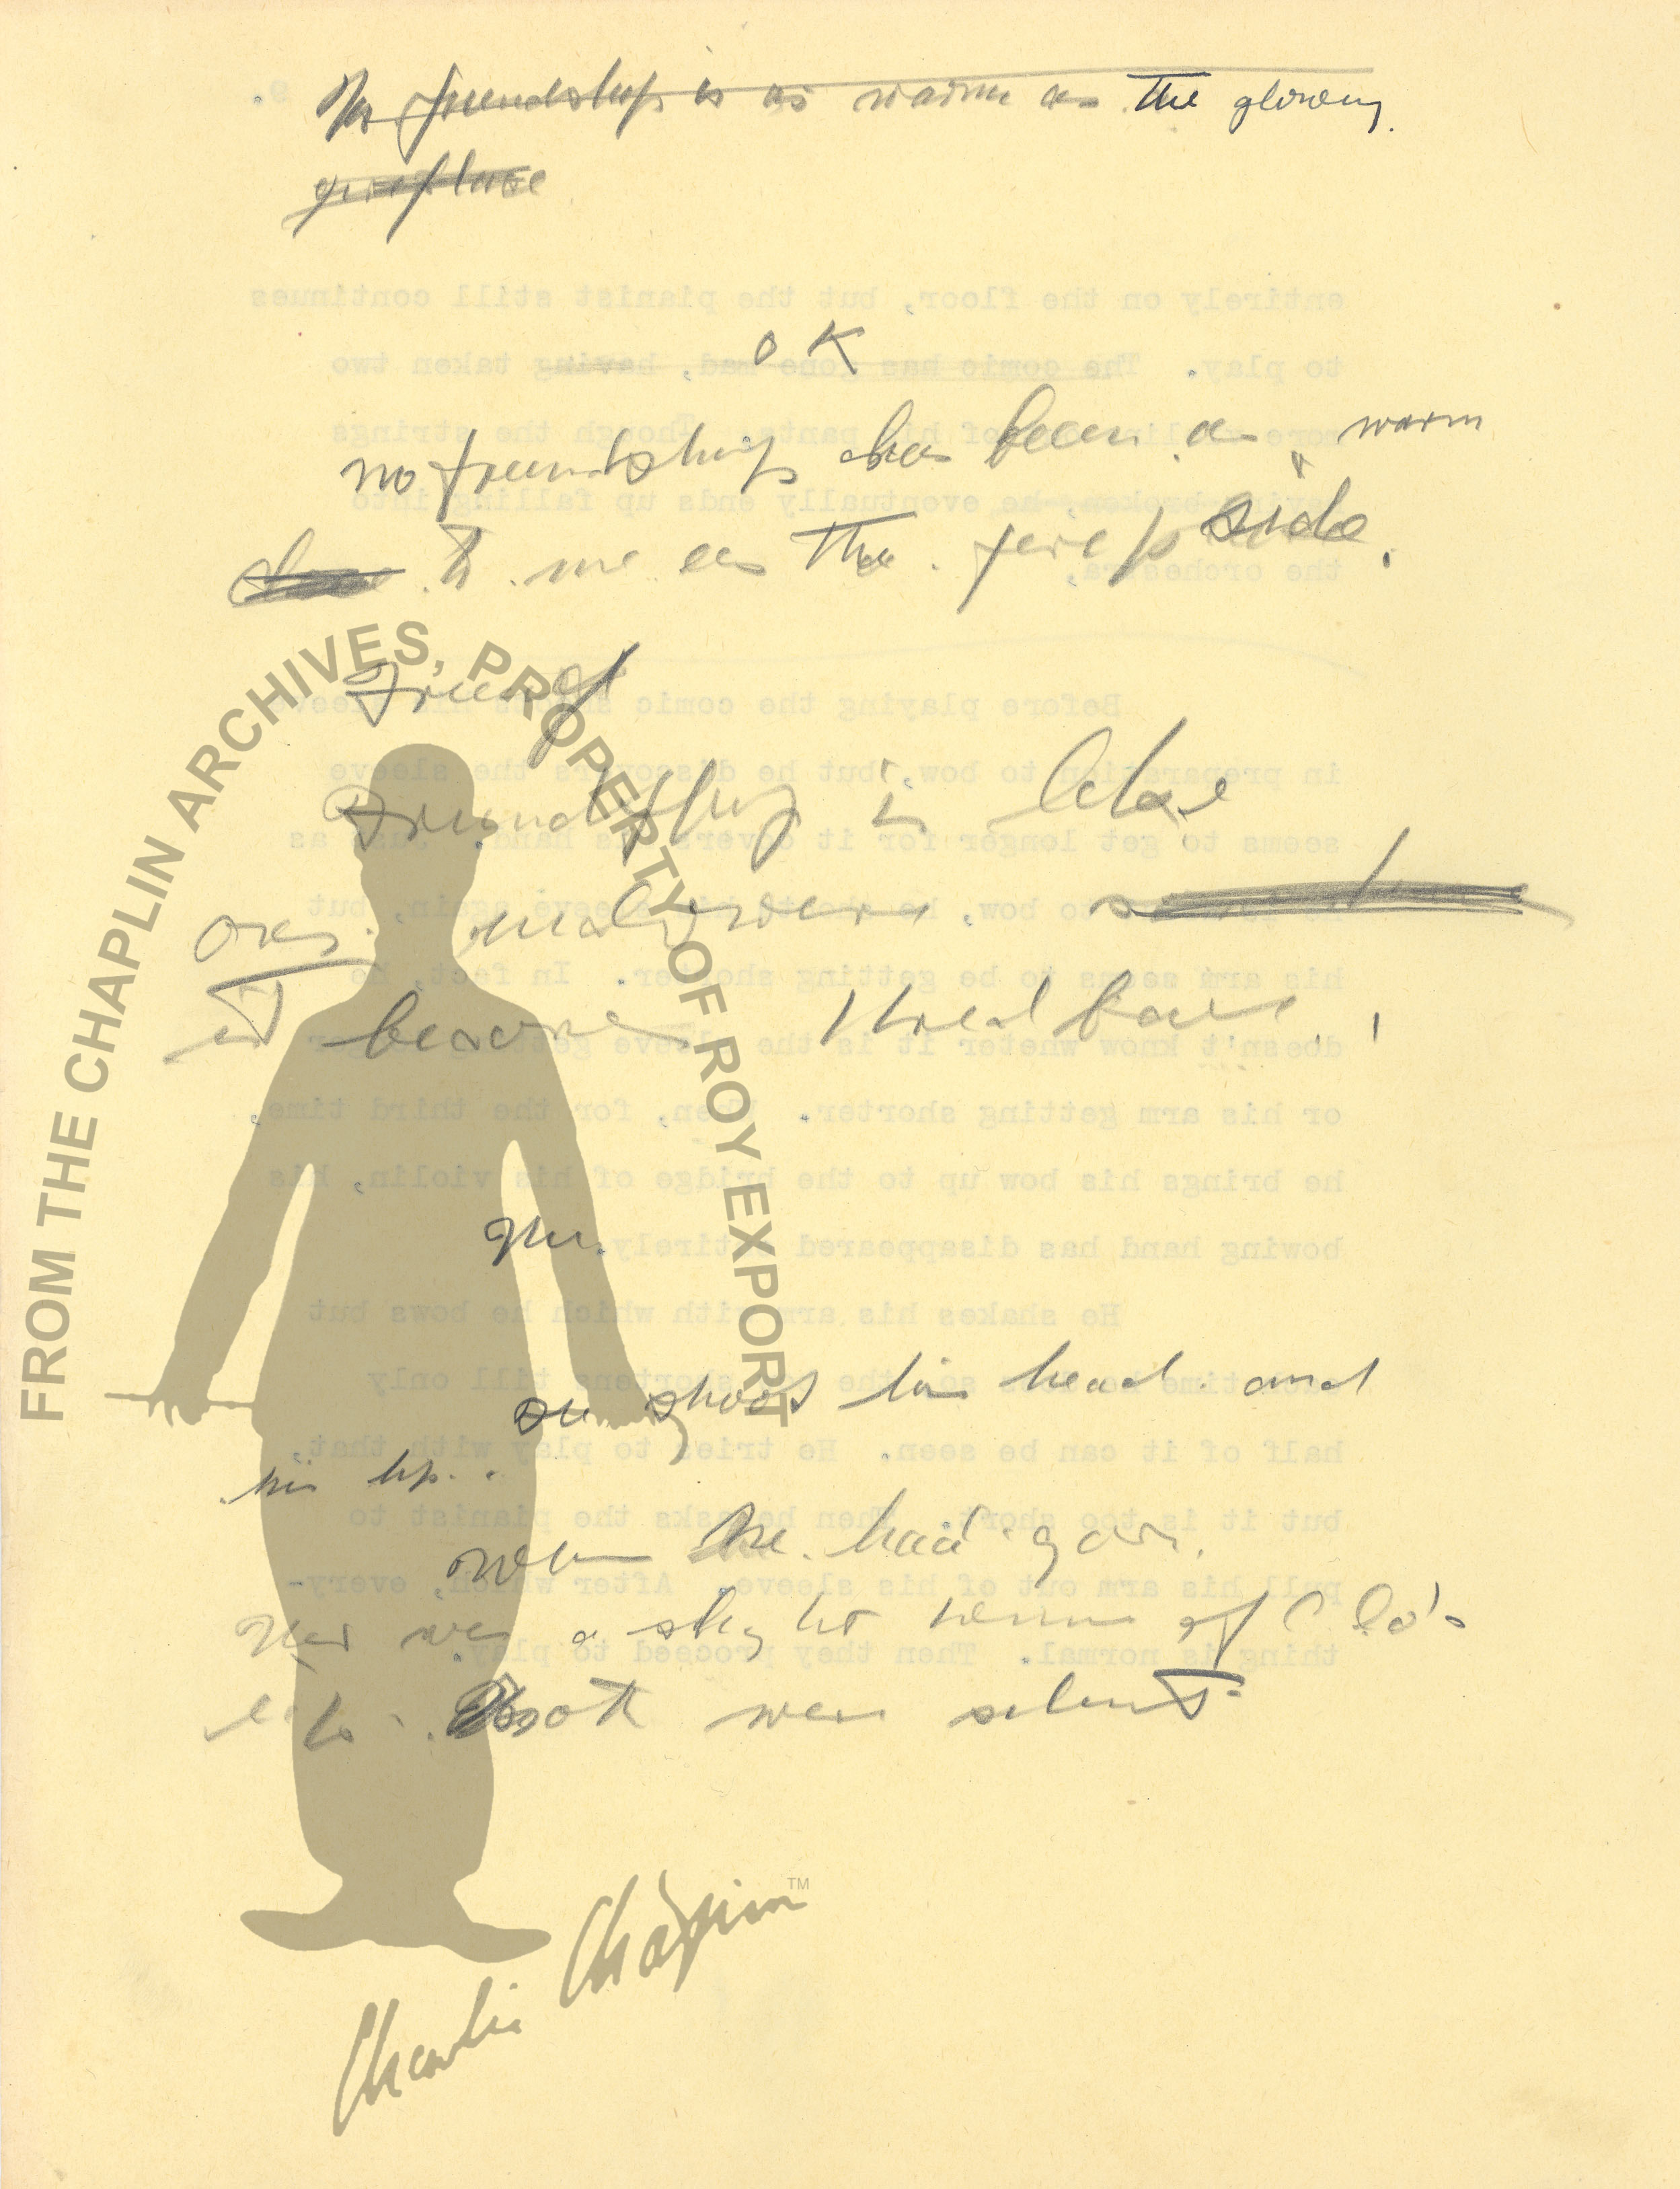 No friendship is as warm as the glowing
fireplace
OK
no friendship has been as warm
to me as the fireside.
Friend
Friendship is like
our underwear
it becomes thread bare.
The
she shook her head and
his lip.
when he had gone.
There was a slight of
Both were silent
entirely on the floor, but the pianist still continues
to play. The comic has gone mad, having taken two
more violins out of his pants. Though the strings
being broken, he eventually ends up falling into
the orchestra.
Before playing the comic shoots his sleeve
in preparation to bow, but he discovers the sleeve
seems to get longer for it covers his hand. Just as
to bow, he shoots his sleeve again, but
his arm seems to be getting shorter. In fact, he
doesn't know wheter it is the sleeve getting longer
or his arm getting shorter. Then, for the third time,
he brings his bow up to the bridge of his violin, his
bowing hand has disappeared entirely.
He shakes his arm with which he bows but
time so the shortens till only
half of it can be seen. He tries to play with that,
but it is too short. Then he asks the pianist to
pull his arm out of his sleeve. After which, every-
thing is normal. Then they proceed to play.
9.
FROM THE CHAPLIN ARCHIVES, PROPERTY OF ROY EXPORT
Charlie Chaplin™